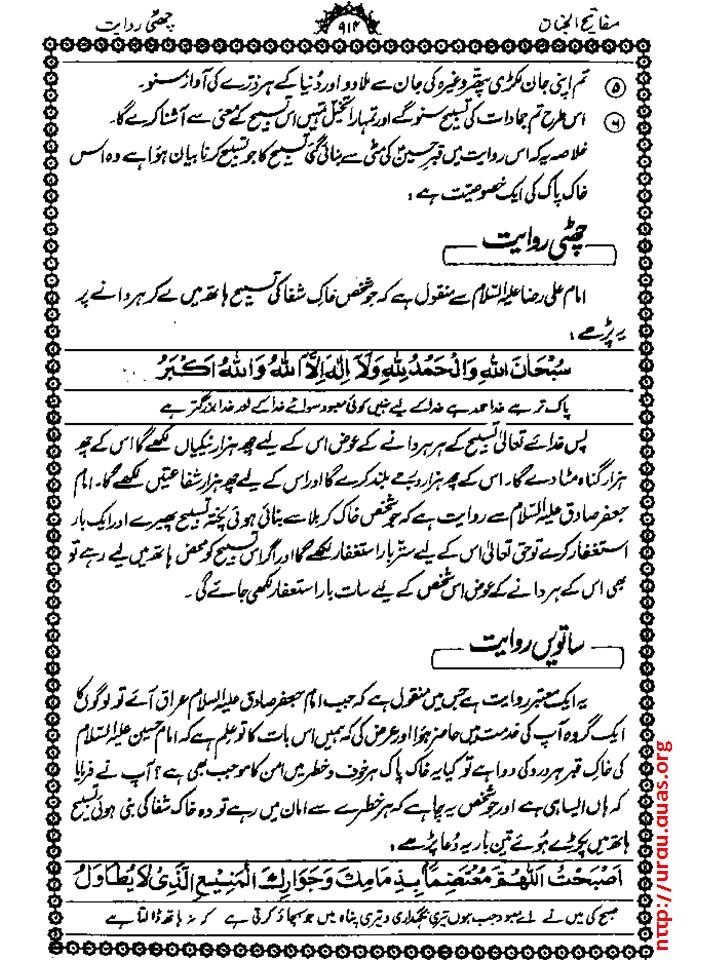 مفاتیح الجنان
۹۱۴
چھٹی روایت
۵ تم اپنی جان لکڑی پتھر وغیرہ کی جان سے ملا دو اور دُنیا کے ہر ذرے کی آواز سنو۔
۶ اس طرح تم جمادات کی تسبیح سنو گے اور تمہارا تخیل تمہیں اس تسبیح کے معنی سے آشنا کرے گا۔
خلاصہ یہ کہ اس روایت میں قبر حسینؑ کی مٹی سے بنائی گئی تسبیح کا جو تسبیح کرنا بیان ہوا ہے وہ اس
خاک پاک کی ایک خصوصیت ہے :
چھٹی روایت
امام علی رضا علیہ السلام سے منقول ہے کہ جو شخص خاکِ شفا کی تسبیح ہاتھ میں لے کر ہر دانے پر
یہ پڑھے :
سُبْحَانَ اللهِ وَالْحَمْدُ لِلهِ وَلَا إِلٰهَ إِلَّا اللهُ وَاللهُ اَكْبَرُ
پاک تر ہے خدا حمد ہے خدا کے لیے نہیں کوئی معبود سوائے خدا کے اور خدا بزرگتر ہے
پس خدائے تعالیٰ تسبیح کے ہر ہر دانے کے عوض اس کے لیے چھ ہزار نیکیاں لکھے گا اس کے چھ
ہزار گناہ مٹا دے گا۔ اس کے چھ ہزار درجے بلند کرے گا اور اس کے لیے چھ ہزار شفاعتیں لکھے گا۔ امام
جعفر صادق علیہ السلام سے روایت ہے کہ جو شخص خاک کربلا سے بنائی ہوئی پختہ تسبیح پھیرے اور ایک بار
استغفار کرے تو حق تعالیٰ اس کے لیے ستر بار استغفار لکھے گا اور اگر اس تسبیح کو محض ہاتھ میں لیے رہے تو
بھی اس کے ہر دانے کے عوض اس شخص کے لیے سات بار استغفار لکھی جائے گی۔
ساتویں روایت
یہ ایک معتبر روایت ہے جس میں منقول ہے کہ جب امام جعفر صادق علیہ السلام عراق آئے تو لوگوں کا
ایک گروہ آپ کی خدمت میں حاضر ہوا اور عرض کی کہ ہمیں اس بات کا تو علم ہے کہ امام حسین علیہ السلام
کی خاکِ قبر ہر درد کی دوا ہے تو کیا یہ خاک پاک ہر خوف و خطر میں امن کا موجب بھی ہے ؟ آپ نے فرمایا
کہ ہاں ایسا ہی ہے اور جو شخص یہ چاہے کہ ہر خطرے سے امان میں رہے تو وہ خاک شفا کی بنی ہوئی تسبیح
ہاتھ میں پکڑے ہوئے تین بار یہ دُعا پڑھے :
اَصْبَحْتُ اَللّٰهُمَّ مُعْتَصِمًا بِذِمَامِكَ وَجِوَارِكَ الْمَنِيْعِ الَّذِىْ لَا يُطَاوَلُ
صبح کی میں نے اے معبود جب ہوں تیری نگہداری و تیری پناہ میں جو بچاؤ کرتی ہے کہ نہ ہاتھ ڈالتا ہے
http://urau.auas.org